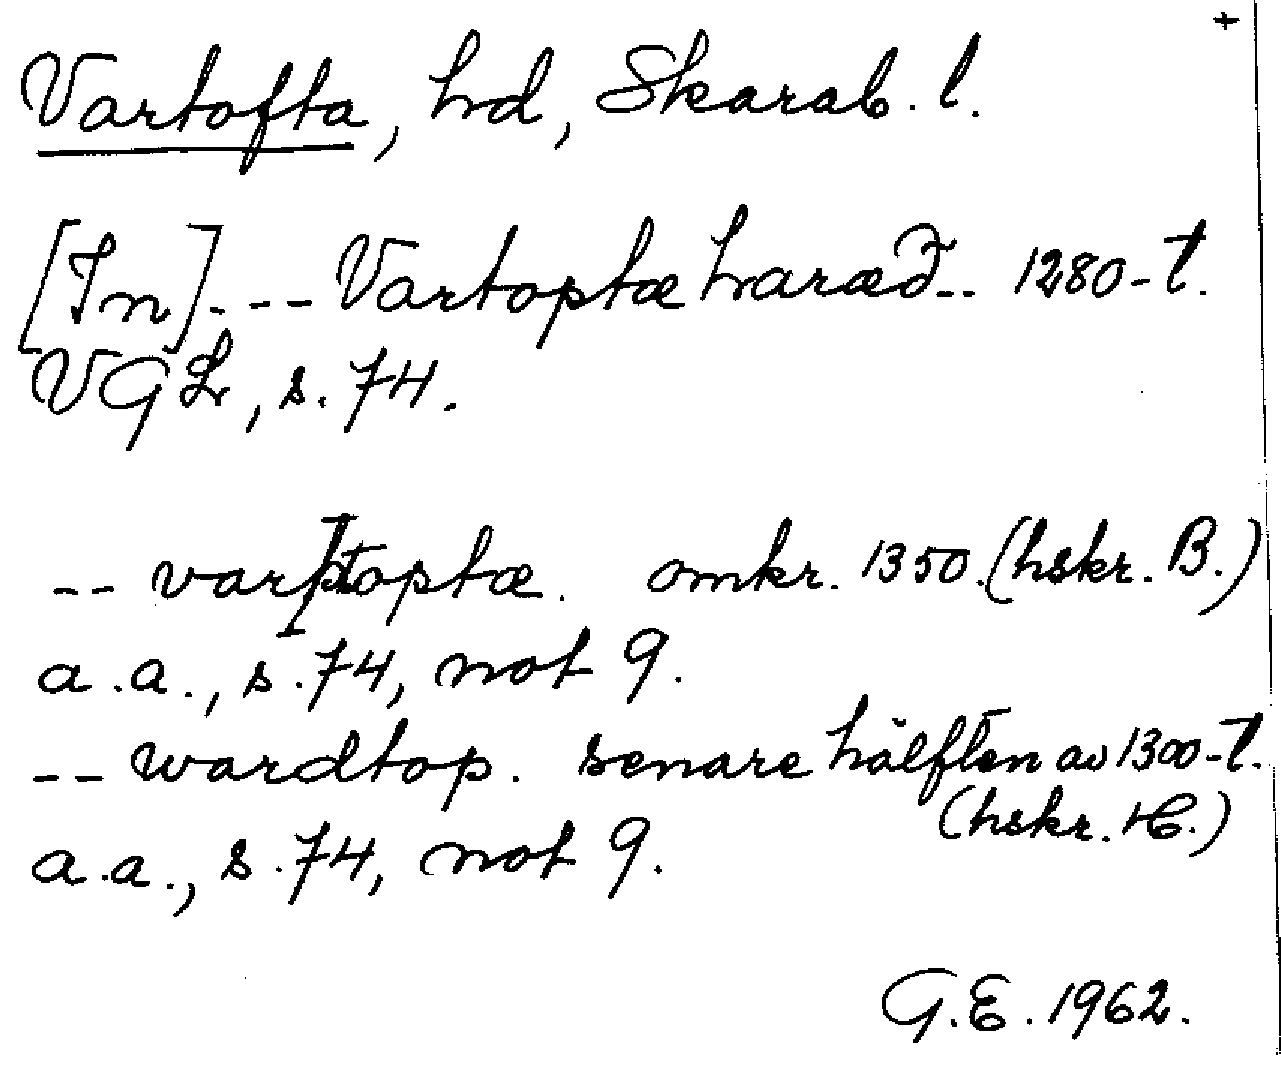 +
Vartofta, hd, Skarab. l.
[In]. -- Vartoptæ haræð -- 1280-t.
VGL, s. 74.
-- varþtoptæ. omkr. 1350. (hskr. B.)
a.a., s. 74, not 9.
-- wardtop. senare hälften av 1300-t.
(hskr. H.)
a.a., s. 74, not 9.
G.E. 1962.